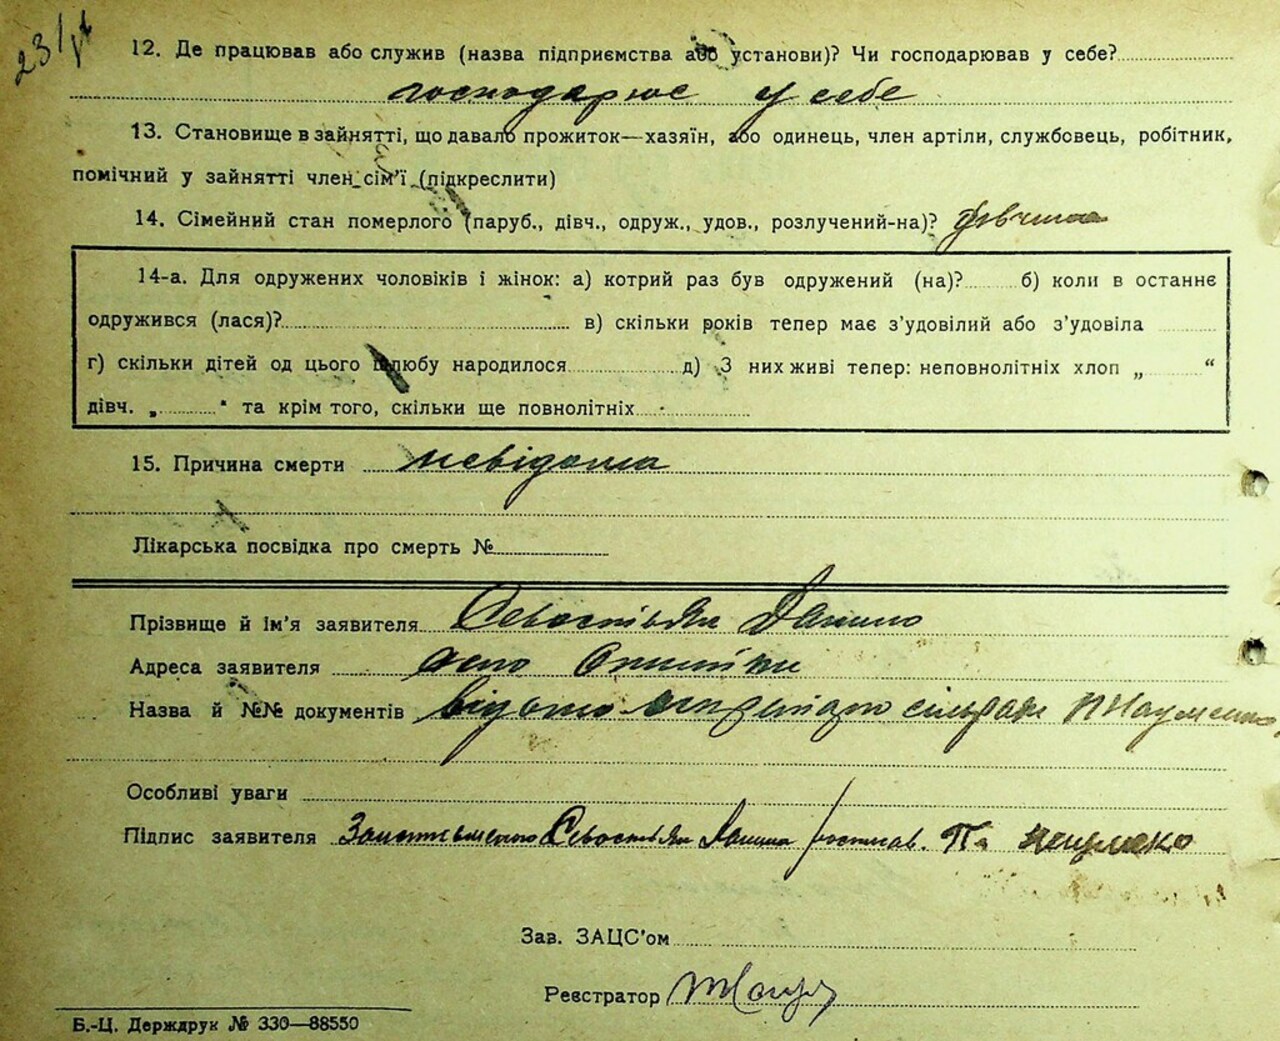 23/VI
12. Де працював або служив (назва підприємства або установи)? Чи господарював у себе?
господарює у себе
13. Становище в зайнятті, що давало прожиток—хазяїн, або одинець, член артіли, службовець, робітник,
помічний у зайнятті член сім'ї (підкреслити)
14. Сімейний стан померлого (паруб., дівч., одруж., удов., розлучений-на)? дівчина
14-а. Для одружених чоловіків і жінок: а) котрий раз був одружений (на)? б) коли в останнє
одружився (лася)? в) скільки років тепер має з'удовілий або з'удовіла
г) скільки дітей од цього шлюбу народилося д) З них живі тепер: неповнолітніх хлоп „ “
дівч. „ “ та крім того, скільки ще повнолітніх
15. Причина смерти невідома
Лікарська посвідка про смерть №
Прізвище й ім'я заявителя Севостьян Данило
Адреса заявителя село
Назва й №№ документів відомо сільради П Науменко
Особливі уваги
Підпис заявителя Севостьян Данила росписав. П. Науменко
Зав. ЗАЦС'ом
Реєстратор
Б.-Ц. Держдрук № 330—88550